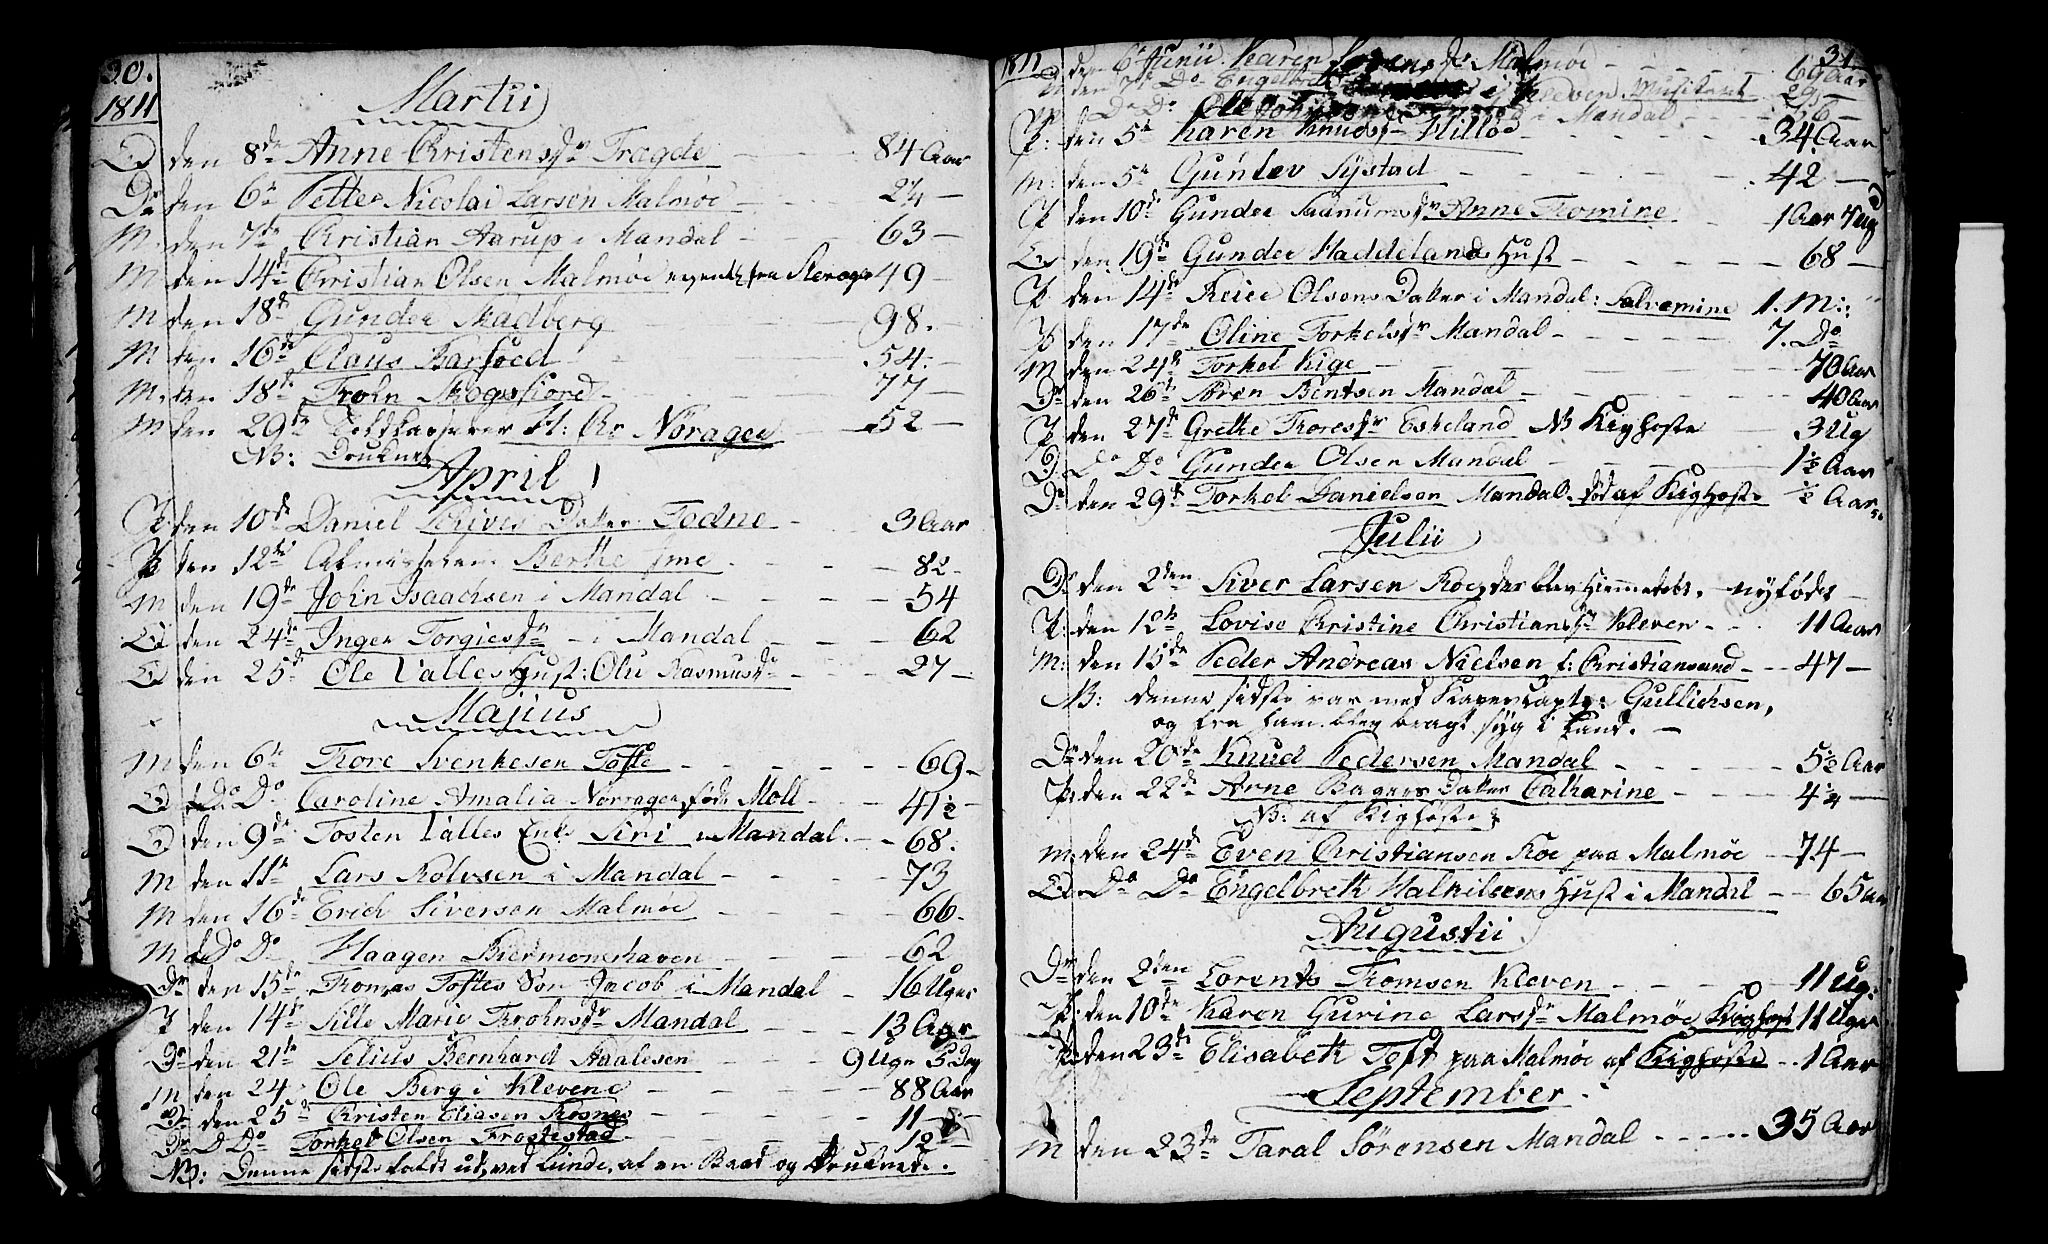 30.
1811
Martii
Q den 8de Anne Christensdr Tregde — 84 Aar
Dr den 6te Petter Nicolai Larsen Malmøe — 2¼ —
M. den 7de Christian Aarup i Mandal — 63 —
M den 14de Christian Olsen Malmøe egentl: fra 49 —
M den 18de Gunder Madberg — 98.
M den 16de Claus Barfoed — 54.
M. den 18de Trohn Skogsfiord — 77 —
M den 29de Toldkasserer H: Chr Nöragen — 52 —
NB: Druknet
April
P den 10de Daniel Datter Todne — 3 Aar
P den 12te Berthe Ime — 82 —
M den 19de John Isaachsen i Mandal — 54
Q den 24de Inger Torgiesdr i Mandal — 62
Q den 25de Ole Valles Hust: Olu Rasmusdr — 27 —
Majus
M den 6te Thore Svenkesen Tofte — 69 —
Q Do Do Caroline Amalia Norragen, født Moll — 41½ —
Q den 9de Tosten Valles Enke Siri i Mandal — 68.
M den 11te Lars Rolvsen i Mandal — 73
M den 16de Erich Siversen Malmøe — 66.
M Do Do Haagen Biermonshaven — 62
Dr den 15de Thomas Toftes Søn Jacob i Mandal — 16 Uger
P den 14de Sille Marie Throhnsdr Mandal — 13 Aar
Dr den 21de Selius Bernhard Aaalesen — 9 Uger 5 Dag
M den 24 Ole Berg i Klevene — 88 Aar
den 25de Christen Eliasen Rosnes — 11 —
Dr D Do Torkel Olsen Frostestad — 12 —
NB: Denne sidste faldt ud, ved Lunde, af en Baad og druknede.
1811
31.
den 6te Junii Karen Malmøe — 69 Aar
den 7de Do Engelbret i Kleven Musikant — 29 —
Do Do Ole i Mandal — 36 —
P: den 5te Karen Knudsdr Hillöe — 34 Aar
M: den 5te Gunlev Systad — 42 —
P den 10de Gunder Saanums dr Anne Thomine — 1 Aar 7 Ug
Q den 19de Gunder Haddelands Hust — 68 —
P den 14de Reier Olsens Datter i Mandal: Salvemine 1. M:
P den 17de Oline Torkelsdr Mandal — 7. Do
M den 24de Torkel Kige — 70 Aar
Dr den 26de Søren Bentsen Mandal — 40 Aar
P den 27de Grethe Thoresdr Eskeland NB Kighoste — 3 Ug
D. Do Do Gunder Olsen Mandal — 1½ Aar
Dr den 29de Torkel Danielsen Mandal. død af Kighoste ½ Aar
Julii
Dr den 2den Siver Larsen Roe, der blev hiemmedøbt, — nyfødt —
P: den 12te Lovise Christine Christiansdr Kleven — 11 Aar
M: den 15de Peder Andreas Nielsen f: Christiansand — 47 —
NB: denne sidste var med Kapercapt: Gullichsen,
og fra ham blev bragt syg i Land. —
Dr den 20de Knud Pedersen Mandal — 5½ Aar
P: den 22de Arne Bagers Datter Catharine — 4½ —
NB: af Kighoste
M. den 24de Even Christiansen Roe paa Malmøe — 74 —
Q Do Do Engelbreth Halvilsens Hust i Mandal — 65 Aar
Augustii
Dr den 2den Lorents Thomsen Kleven — 11 Ug:
P: den 10de Karen Gurine Larsdr Malmøe Kighost 11 Uger
P: den 23de Elisabeth Toft paa Malmøe af Kighoste — 1 Aar
September
M den 23de Taral Sörensen Mandal — 35 Aar